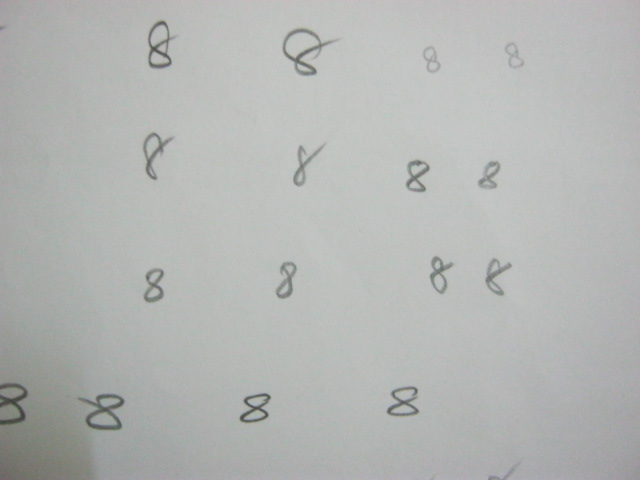 8 8 8 8
8 8 8 8
8 8 8 8
8 8 8 8